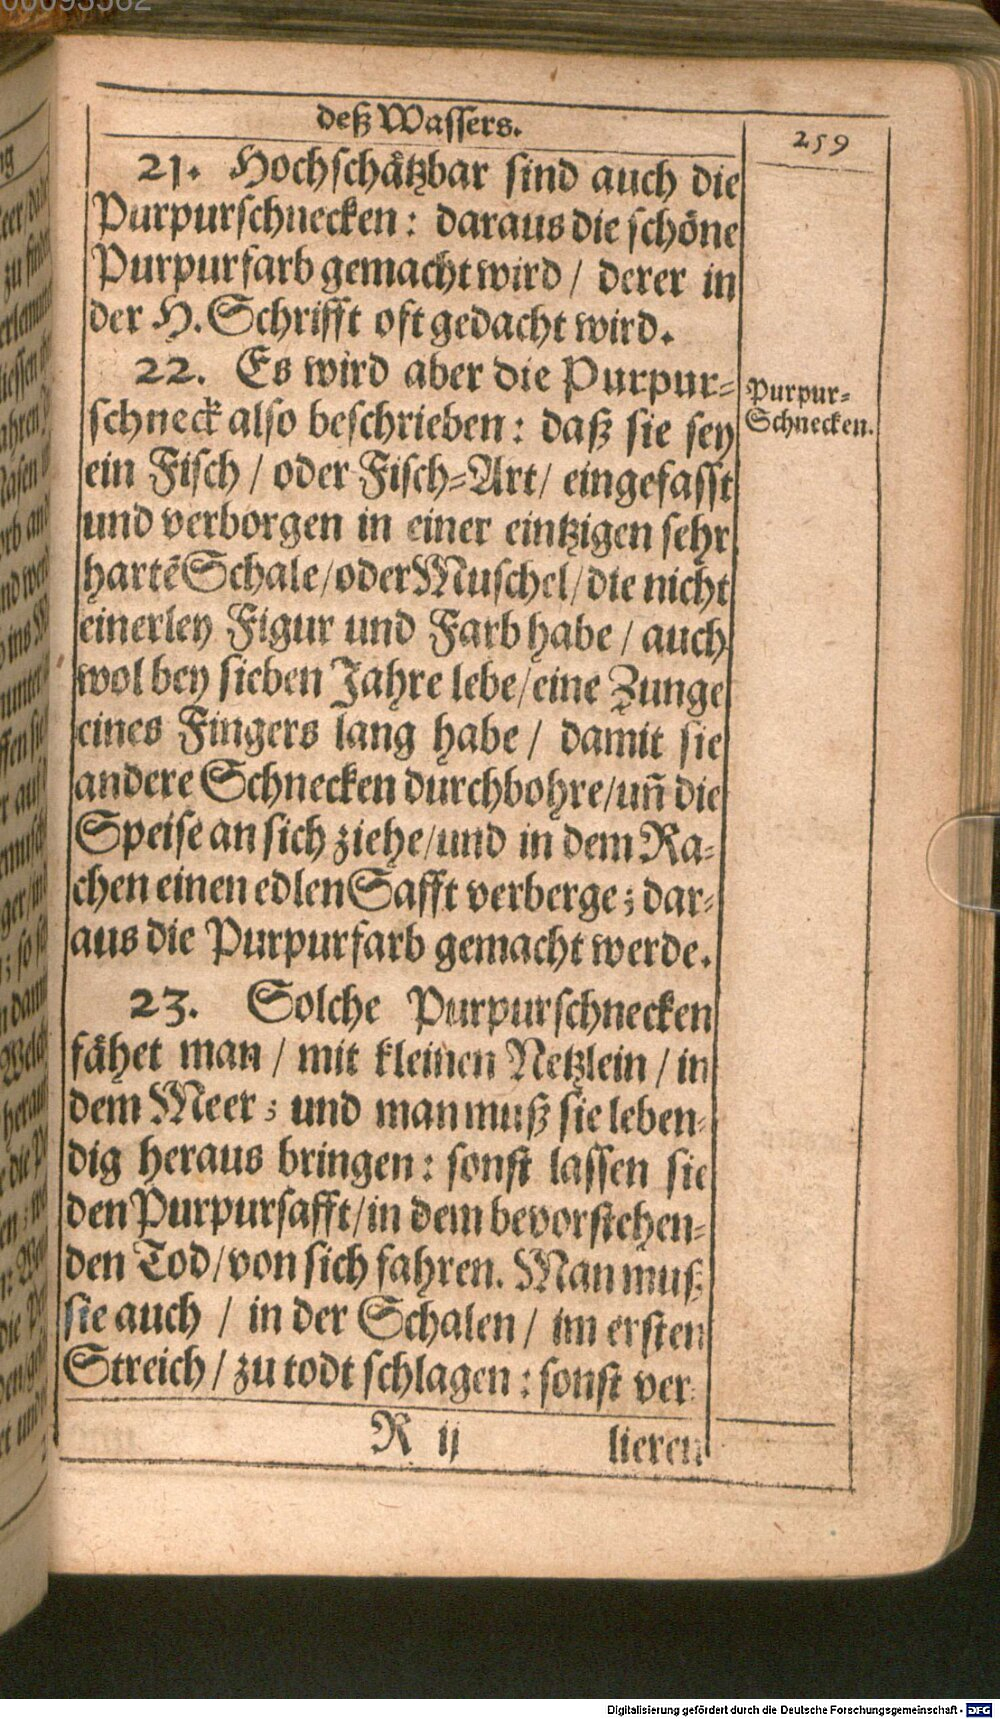 deß Wassers.
259
21. Hochschåtzbar sind auch die
Purpurschnecken: daraus die schöne
Purpurfarb gemacht wird / derer in
der H. Schrifft oft gedacht wird.
22. Es wird aber die Purpur-
schneck also beschrieben: daß sie sey
ein Fisch / oder Fisch-Art / eingefasst
und verborgen in einer eintzigen sehr
hartē Schale / oder Muschel / die nicht
einerley Figur und Farb habe / auch
wol bey sieben Jahre lebe / eine Zunge
eines Fingers lang habe / damit sie
andere Schnecken durchbohre / uñ die
Speise an sich ziehe / und in dem Ra-
chen einen edlen Safft verberge; dar-
aus die Purpurfarb gemacht werde.
Purpur-
Schnecken.
23. Solche Purpurschnecken
fåhet man / mit kleinen Netzlein / in
dem Meer; und man muß sie leben-
dig heraus bringen: sonst lassen sie
den Purpursafft / in dem bevorstehen-
den Tod / von sich fahren. Man muß
sie auch / in der Schalen / im ersten
Streich / zu todt schlagen: sonst ver-
R ij
lieren
Digitalisierung gefördert durch die Deutsche Forschungsgemeinschaft - DFG